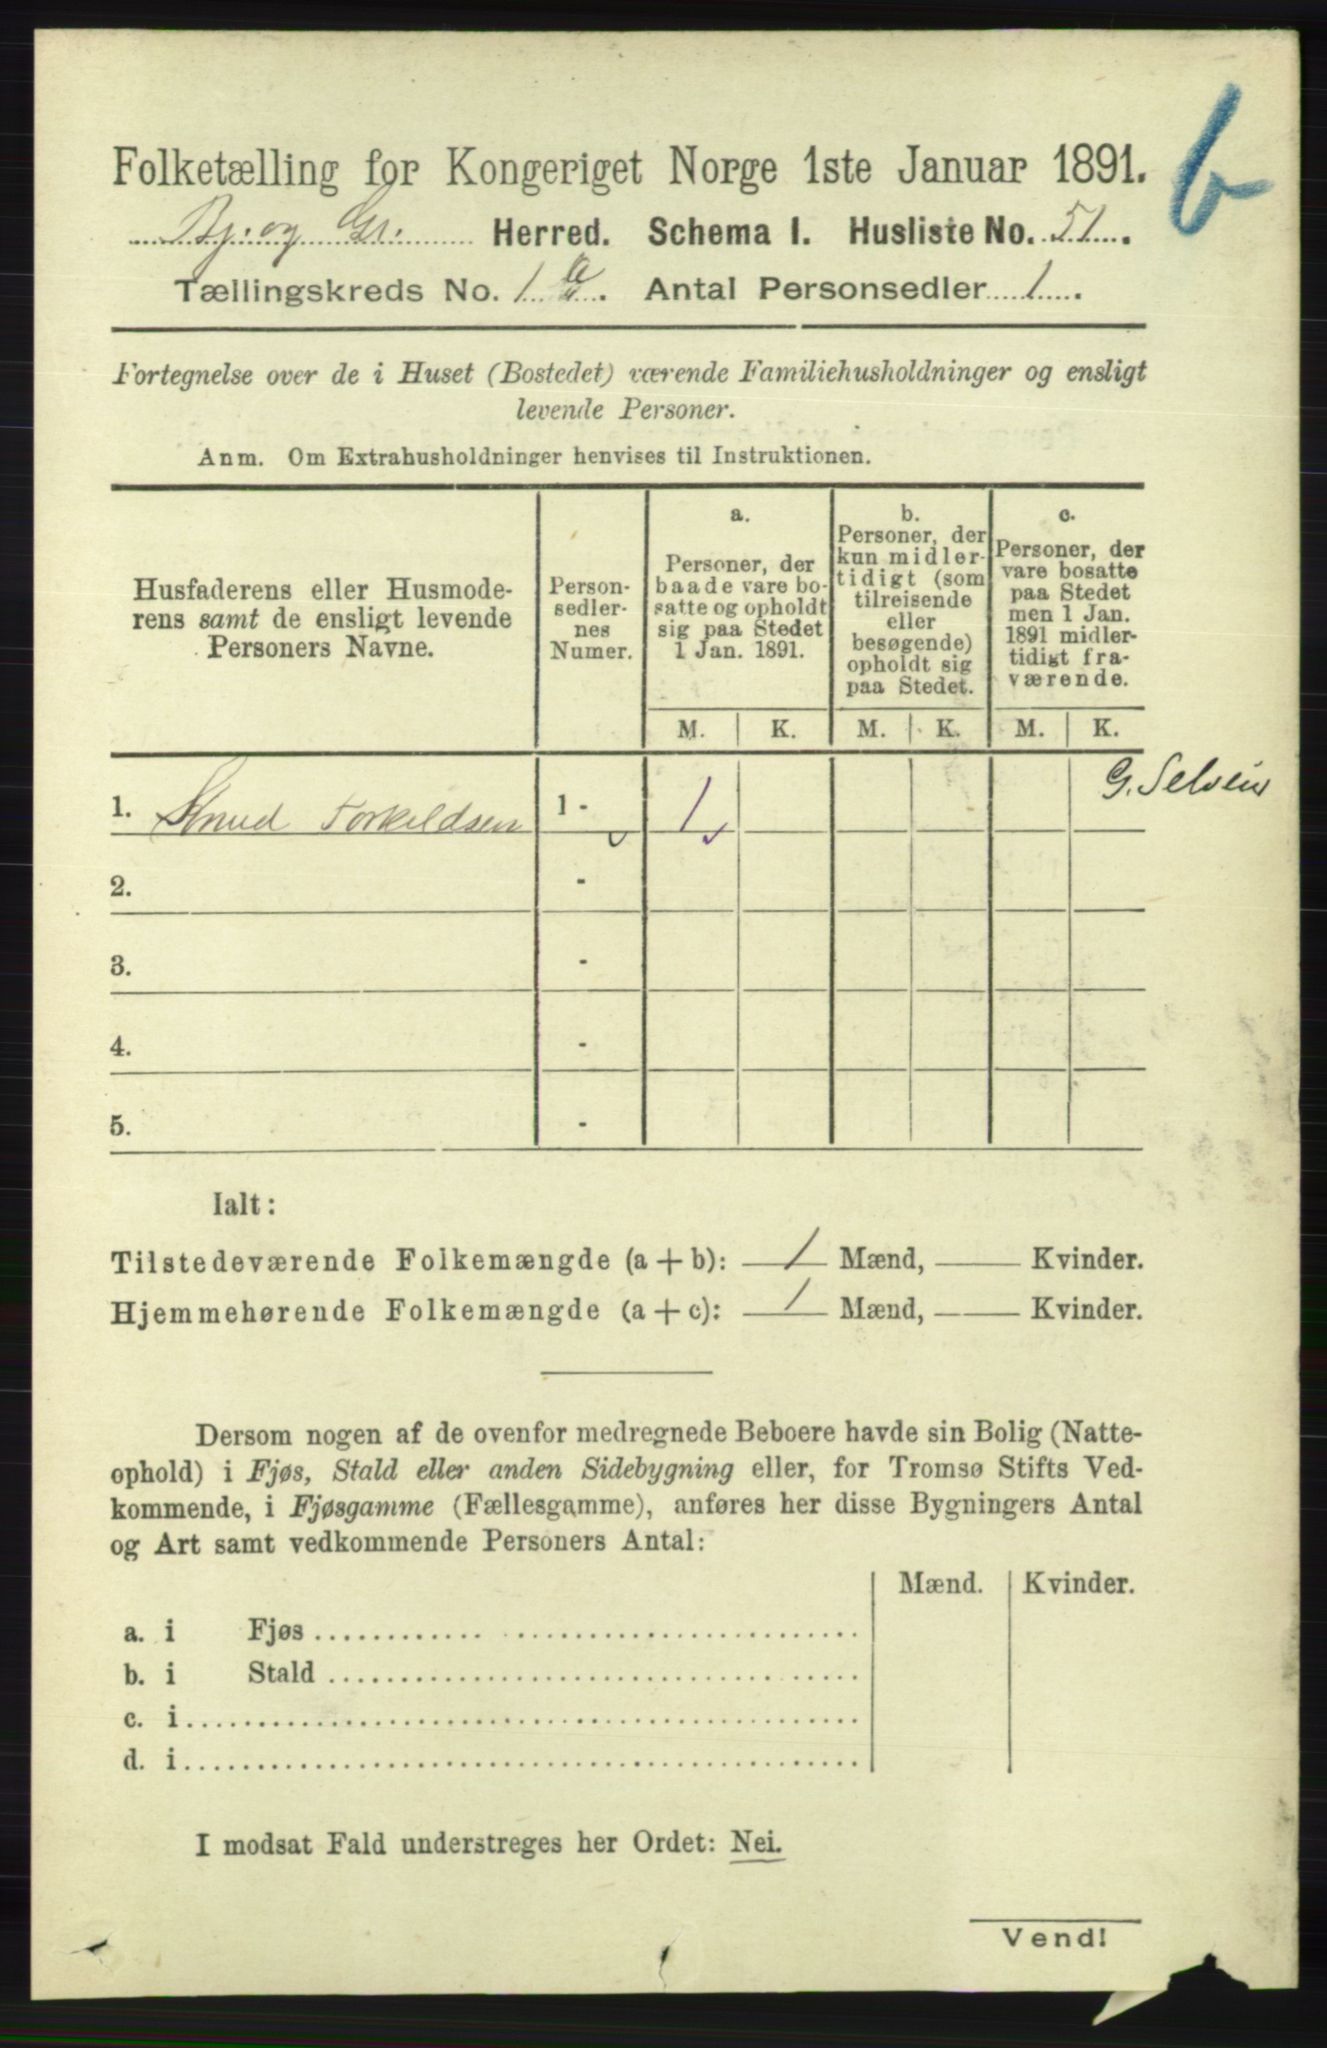 b
Folketælling for Kongeriget Norge 1ste Januar 1891.
Bj. og Gr. Herred. Schema I. Husliste No. 51.
Tællingskreds No. 1 a. Antal Personsedler 1.
Fortegnelse over de i Huset (Bostedet) værende Familiehusholdninger og ensligt
levende Personer.
Anm. Om Extrahusholdninger henvises til Instruktionen.
Husfaderens eller Husmode-
rens samt de ensligt levende
Personers Navne.
Person-
sedler-
nes
Numer.
a.
Personer, der
baade vare bo-
satte og opholdt
sig paa Stedet
1 Jan. 1891.
b.
Personer, der
kun midler-
tidigt (som
tilreisende
eller
besøgende)
opholdt sig
paa Stedet.
c.
Personer, der
vare bosatte
paa Stedet
men 1 Jan.
1891 midler-
tidigt fra-
værende.
M. K. M. K. M. K.
1. Knud Torkeldsen 1 - 1 G. Selvein
2. -
3. -
4. -
5. -
Ialt:
Tilstedeværende Folkemængde (a + b): 1 Mænd, Kvinder.
Hjemmehørende Folkemængde (a + c): 1 Mænd, Kvinder.
Dersom nogen af de ovenfor medregnede Beboere havde sin Bolig (Natte-
ophold) i Fjøs, Stald eller anden Sidebygning eller, for Tromsø Stifts Ved-
kommende, i Fjøsgamme (Fællesgamme), anføres her disse Bygningers Antal
og Art samt vedkommende Personers Antal:
Mænd. Kvinder.
a. i Fjøs
b. i Stald
c. i
d. i
I modsat Fald understreges her Ordet: Nei.
Vend!